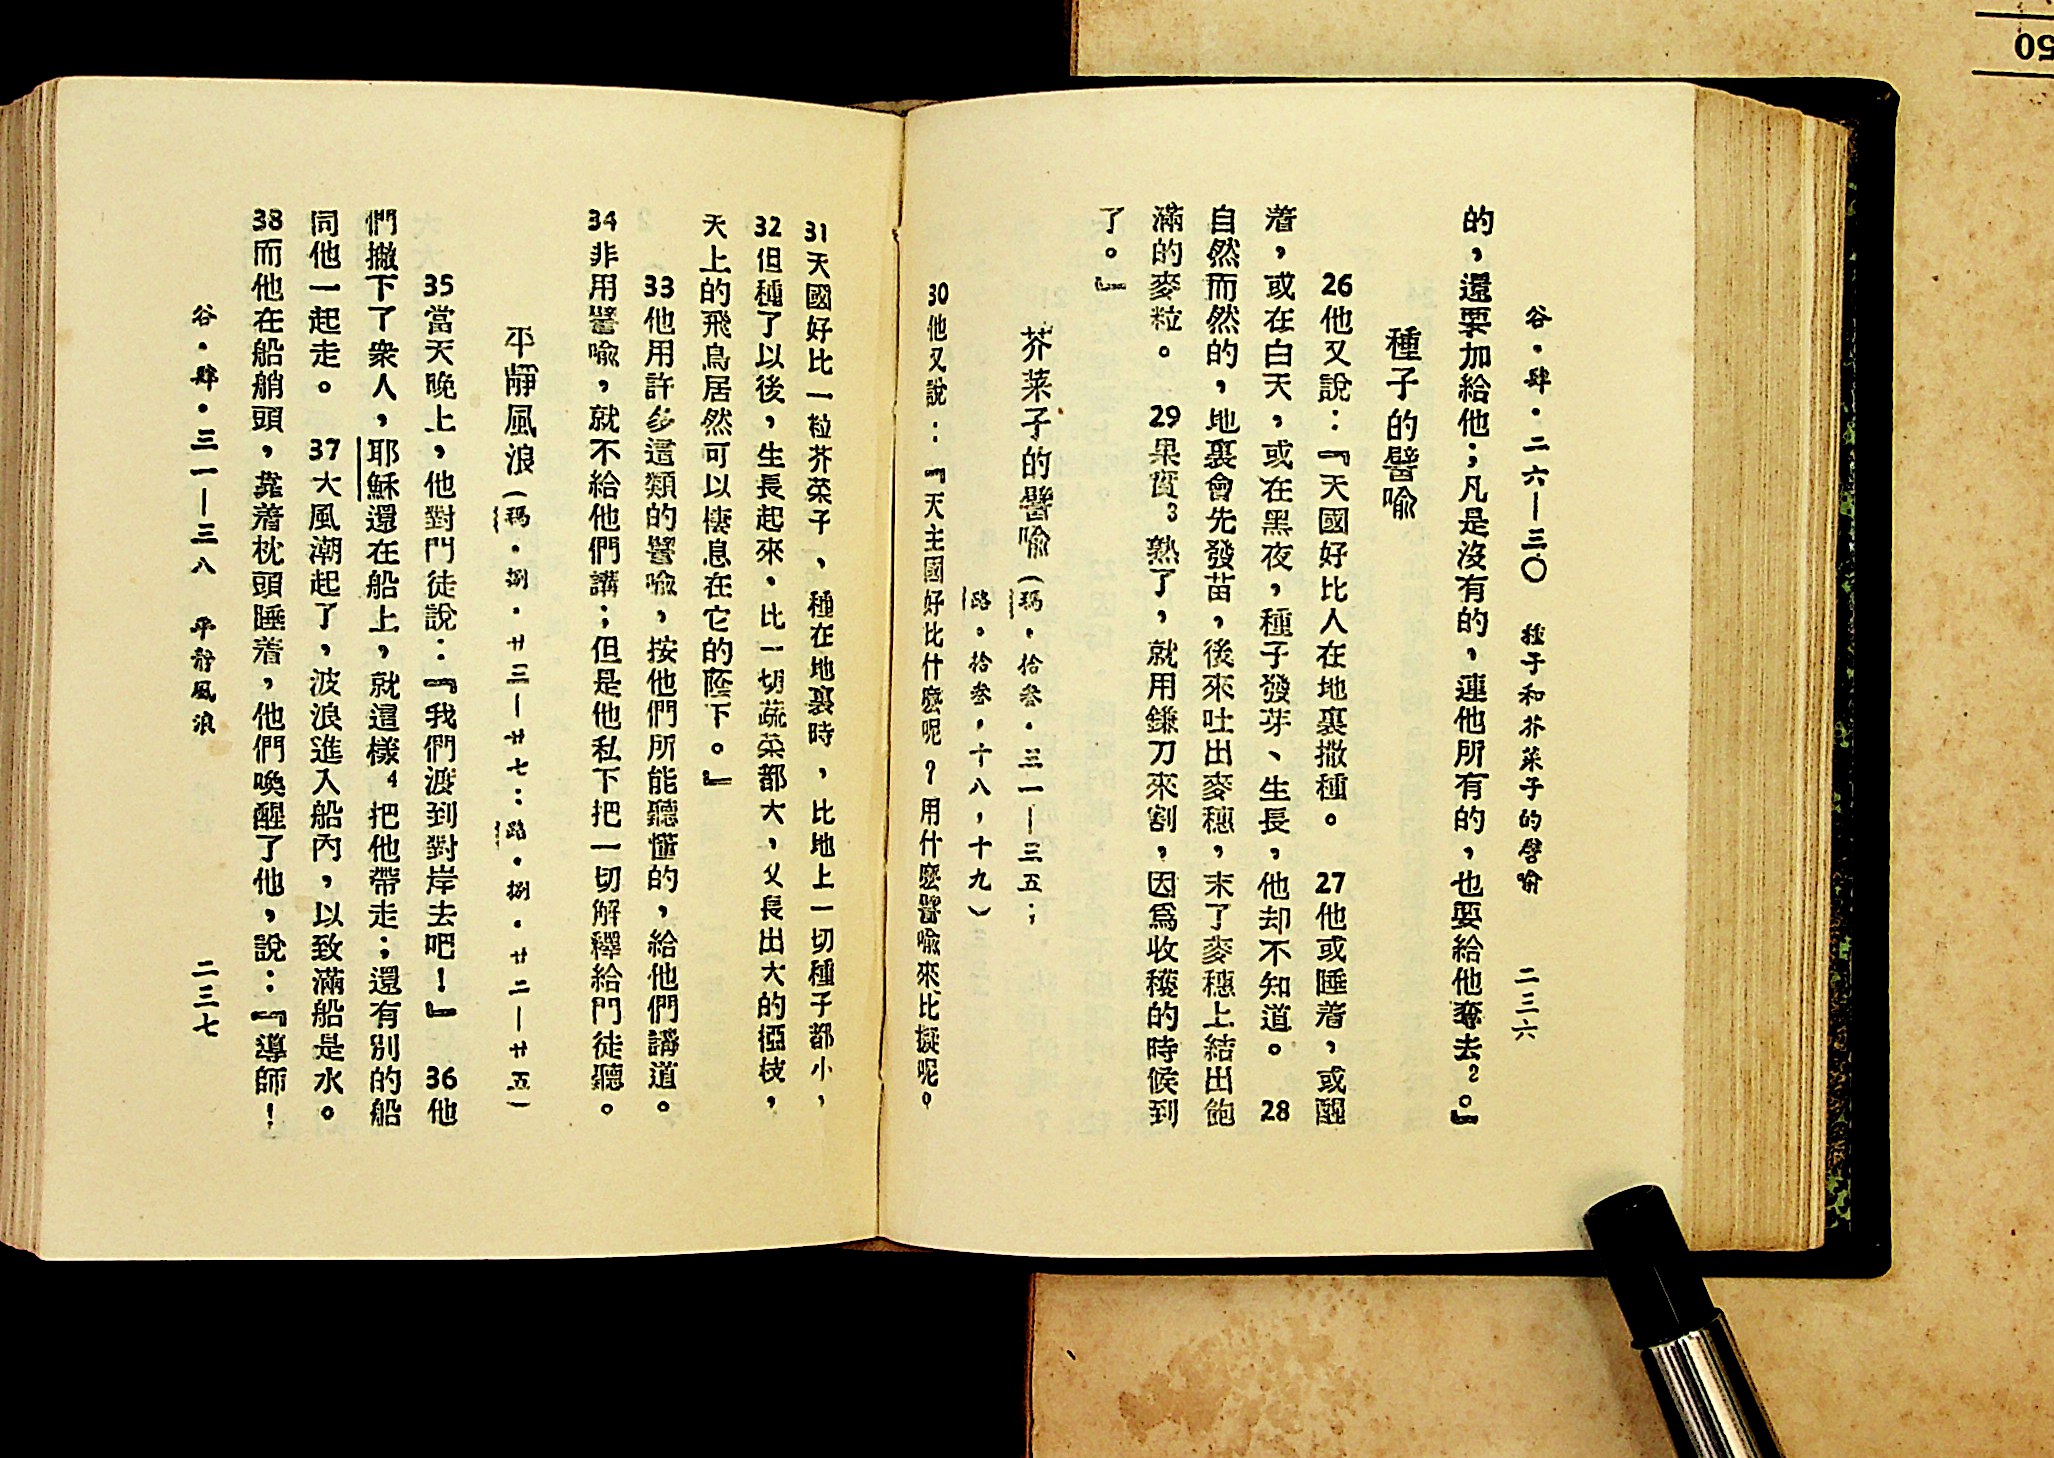 谷・肆・二六—三〇　種子和芥菜子的譬喻　二三六
的，還要加給他；凡是沒有的，連他所有的，也要給他奪去2。』
種子的譬喻
26他又說：『天國好比人在地裏撒種。27他或睡着，或醒
着，或在白天，或在黑夜，種子發芽、生長，他却不知道。28
自然而然的，地裏會先發苗，後來吐出麥穗，末了麥穗上結出飽
滿的麥粒。29果實3熟了，就用鎌刀來割，因爲收穫的時候到
了。』
芥菜子的譬喻（瑪・拾叁・三一—三五；
路・拾叁・十八，十九）
30他又說：『天主國好比什麽呢？用什麽譬喻來比擬呢。
31天國好比一粒芥菜子、種在地裏時，比地上一切種子都小，
32但種了以後，生長起來、比一切蔬菜都大，又長出大的椏枝，
天上的飛鳥居然可以棲息在它的蔭下。』
33他用許多這類的譬喻，按他們所能聽懂的，給他們講道。
34非用譬喻，就不給他們講；但是他私下把一切解釋給門徒聽。
平靜風浪（瑪・捌・廿三—廿七；路・捌・廿二—廿五）
35當天晚上，他對門徒說：『我們渡到對岸去吧！』36他
們撇下了衆人，耶穌還在船上，就這樣4把他帶走；還有別的船
同他一起走。37大風潮起了，波浪進入船內，以致滿船是水。
38而他在船艄頭，靠着枕頭睡着，他們喚醒了他，說：『導師！
谷・肆・三一—三八　平靜風浪　二三七
50